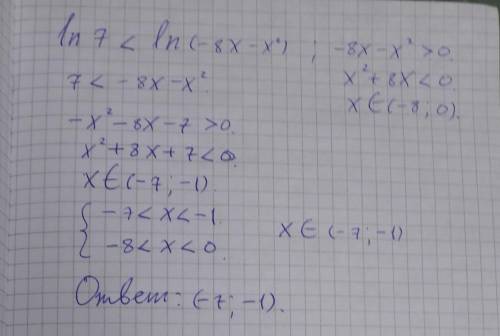 ln 7 < ln(-8x-x²) ; -8x-x²>0.
7 < -8x-x². x²+8x<0.
x∈(-8; 0).
-x²-8x-7>0.
x²+8x+7<0.
x∈(-7; -1).
{ -7<x<-1.
-8<x<0. x∈(-7; -1)
Ответ: (-7; -1).